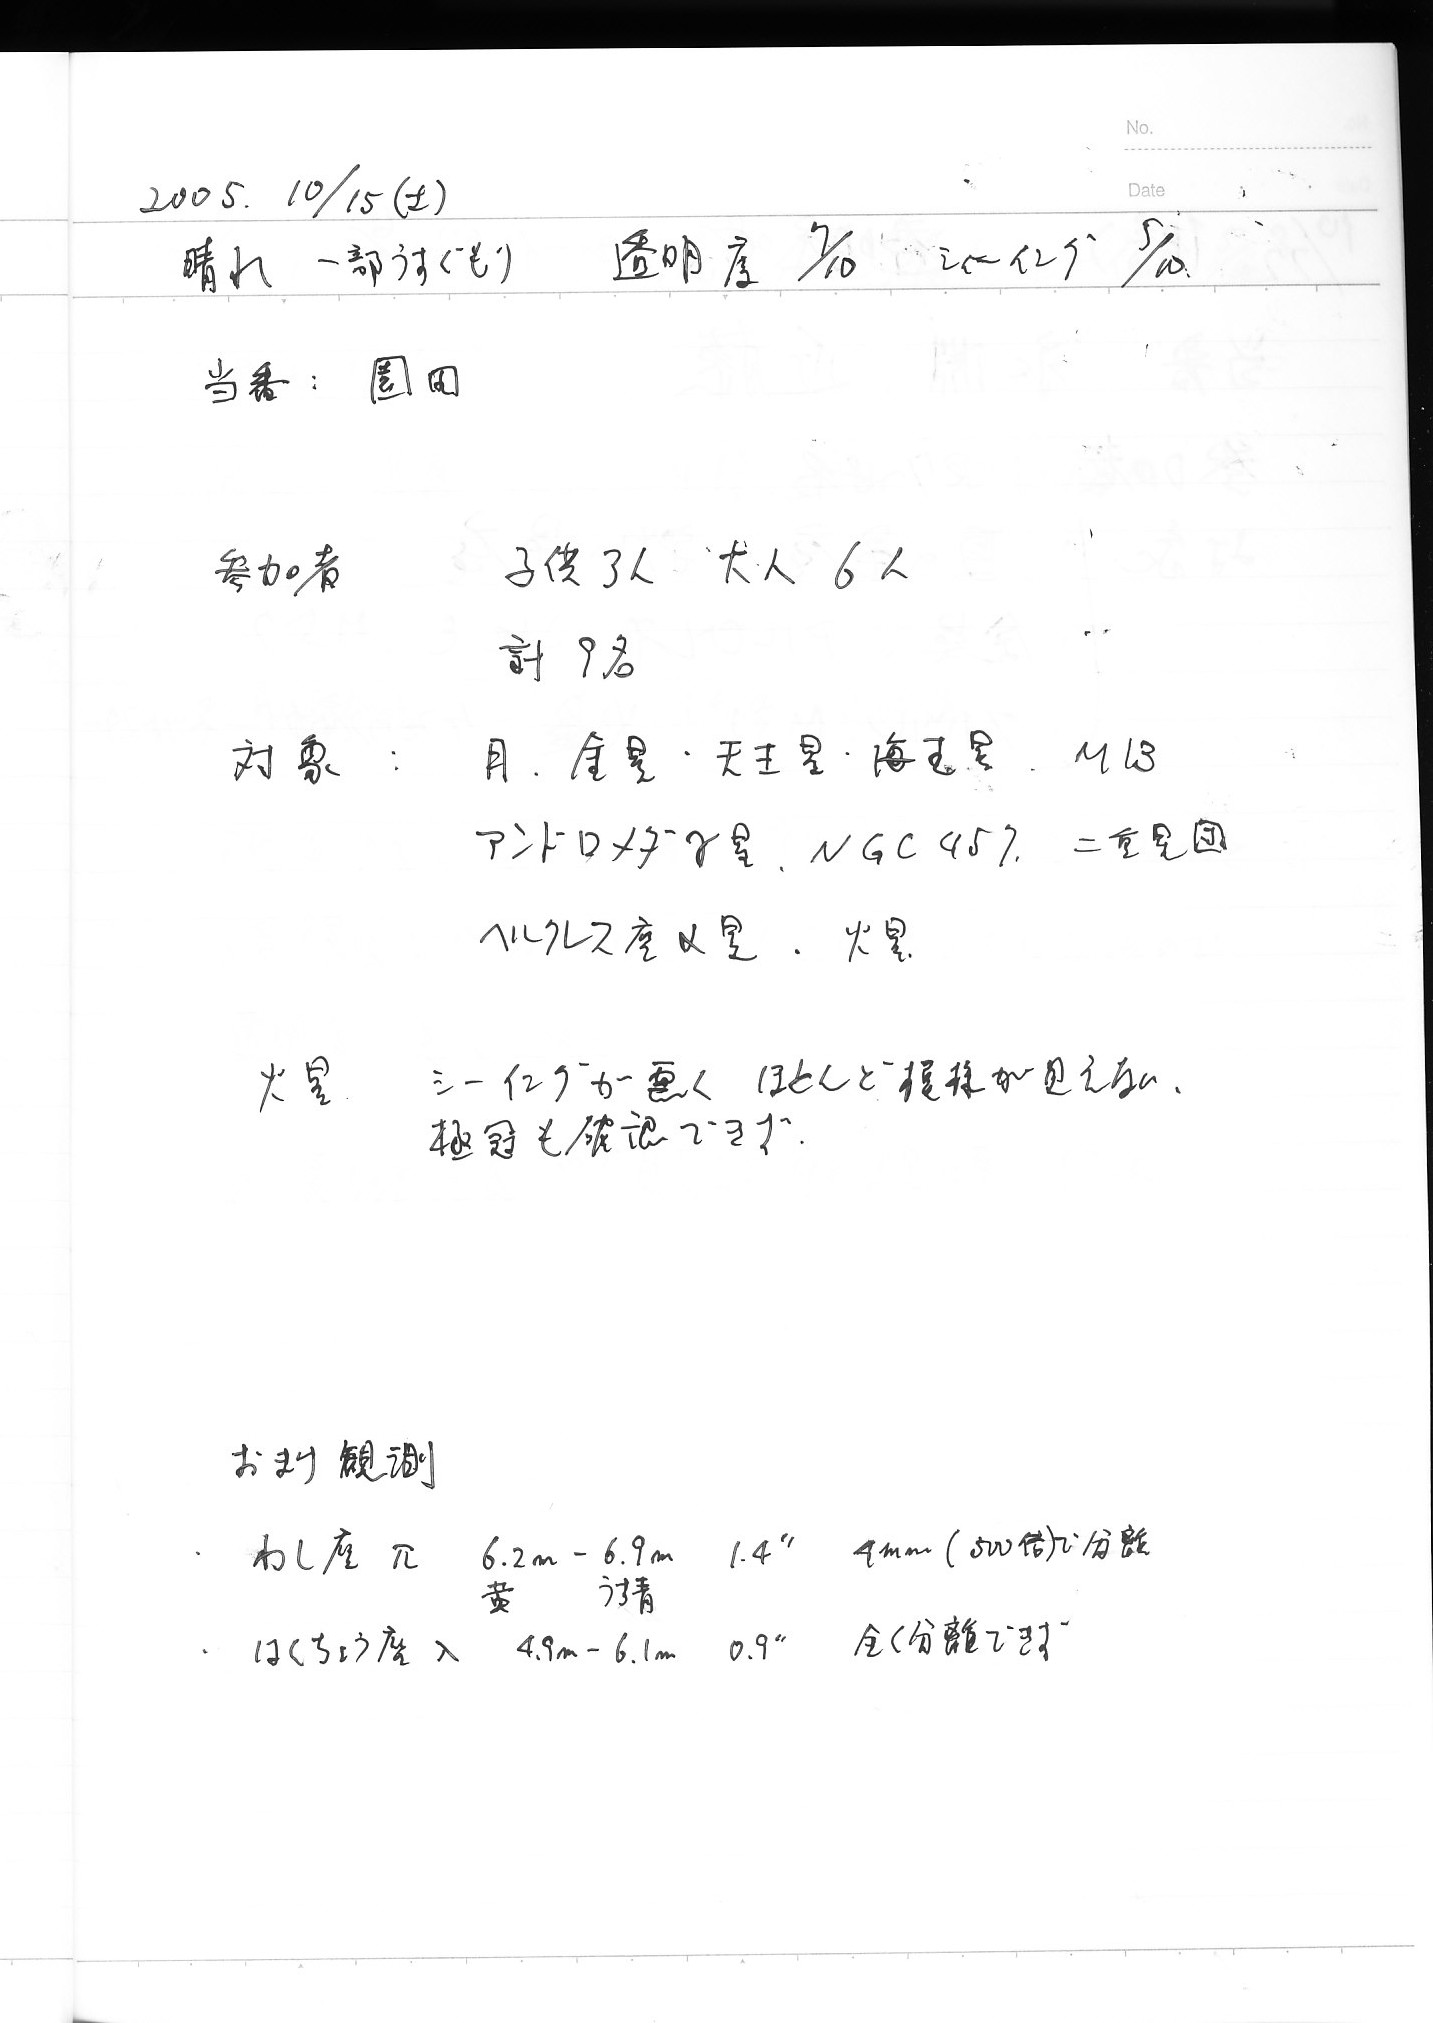 No.
Date
2005. 10/15(土)
晴れ 一部うすぐもり 透明度 7/10 シーイング 5/10.
当番: 園田
参加者 子供3人 大人6人
計9名
対象: 月. 金星・天王星・海王星. M13
アンドロメダγ星. NGC457. 二重星団
ヘルクレス座α星. 火星
火星 シーイングが悪く ほとんど模様が見えない.
極冠も確認できず.
おまけ観測
・ わし座 π 6.2m-6.9m 1.4" 4mm(500倍)で分離
黄 うす青
・ はくちょう座 λ 4.9m-6.1m 0.9" 全く分離できず